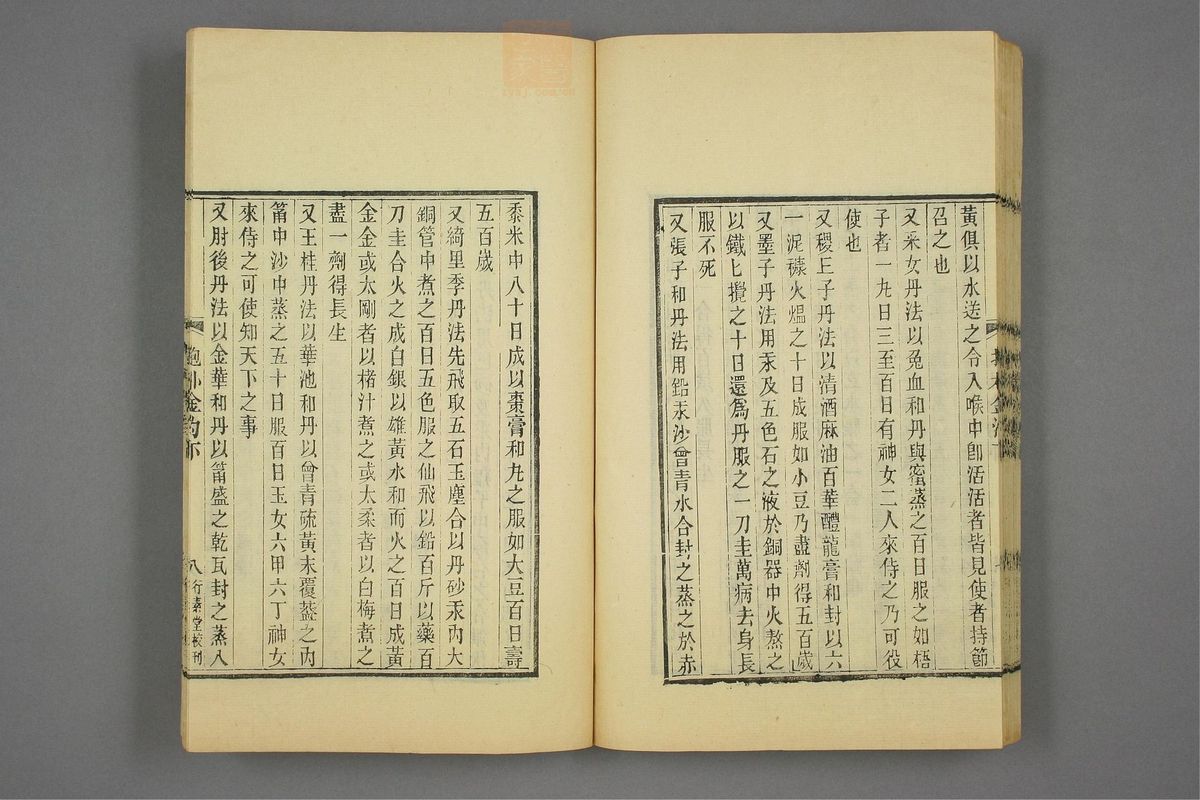 黃俱以水送之令入喉中卽活活者皆見使者持節
召之也
又采女丹法以兔血和丹與蜜蒸之百日服之如梧
子者一丸日三至百日有神女二人來侍之乃可役
使也
又稷丘子丹法以清酒麻油百華醴龍膏和封以六
一泥穅火熅之十日成服如小豆乃盡劑得五百歲
又墨子丹法用汞及五色石之液於銅器中火熬之
以鐵匕攪之十日還爲丹服之一刀圭萬病去身長
服不死
又張子和丹法用鉛汞沙曾青水合封之蒸之於赤
黍米中八十日成以棗膏和丸之服如大豆百日壽
五百歲
又綺里季丹法先飛取五石玉塵合以丹砂汞內大
銅管中煮之百日五色服之仙飛以鉛百斤以藥百
刀圭合火之成白銀以雄黃水和而火之百日成黃
金金或太剛者以楮汁煮之或太柔者以白梅煮之
盡一劑得長生
又王柱丹法以華池和丹以曾青硫黃末覆薟之內
筩中沙中蒸之五十日服百日玉女六甲六丁神女
來侍之可使知天下之事
又肘後丹法以金華和丹以筩盛之乾瓦封之蒸八
八 行素堂校刊